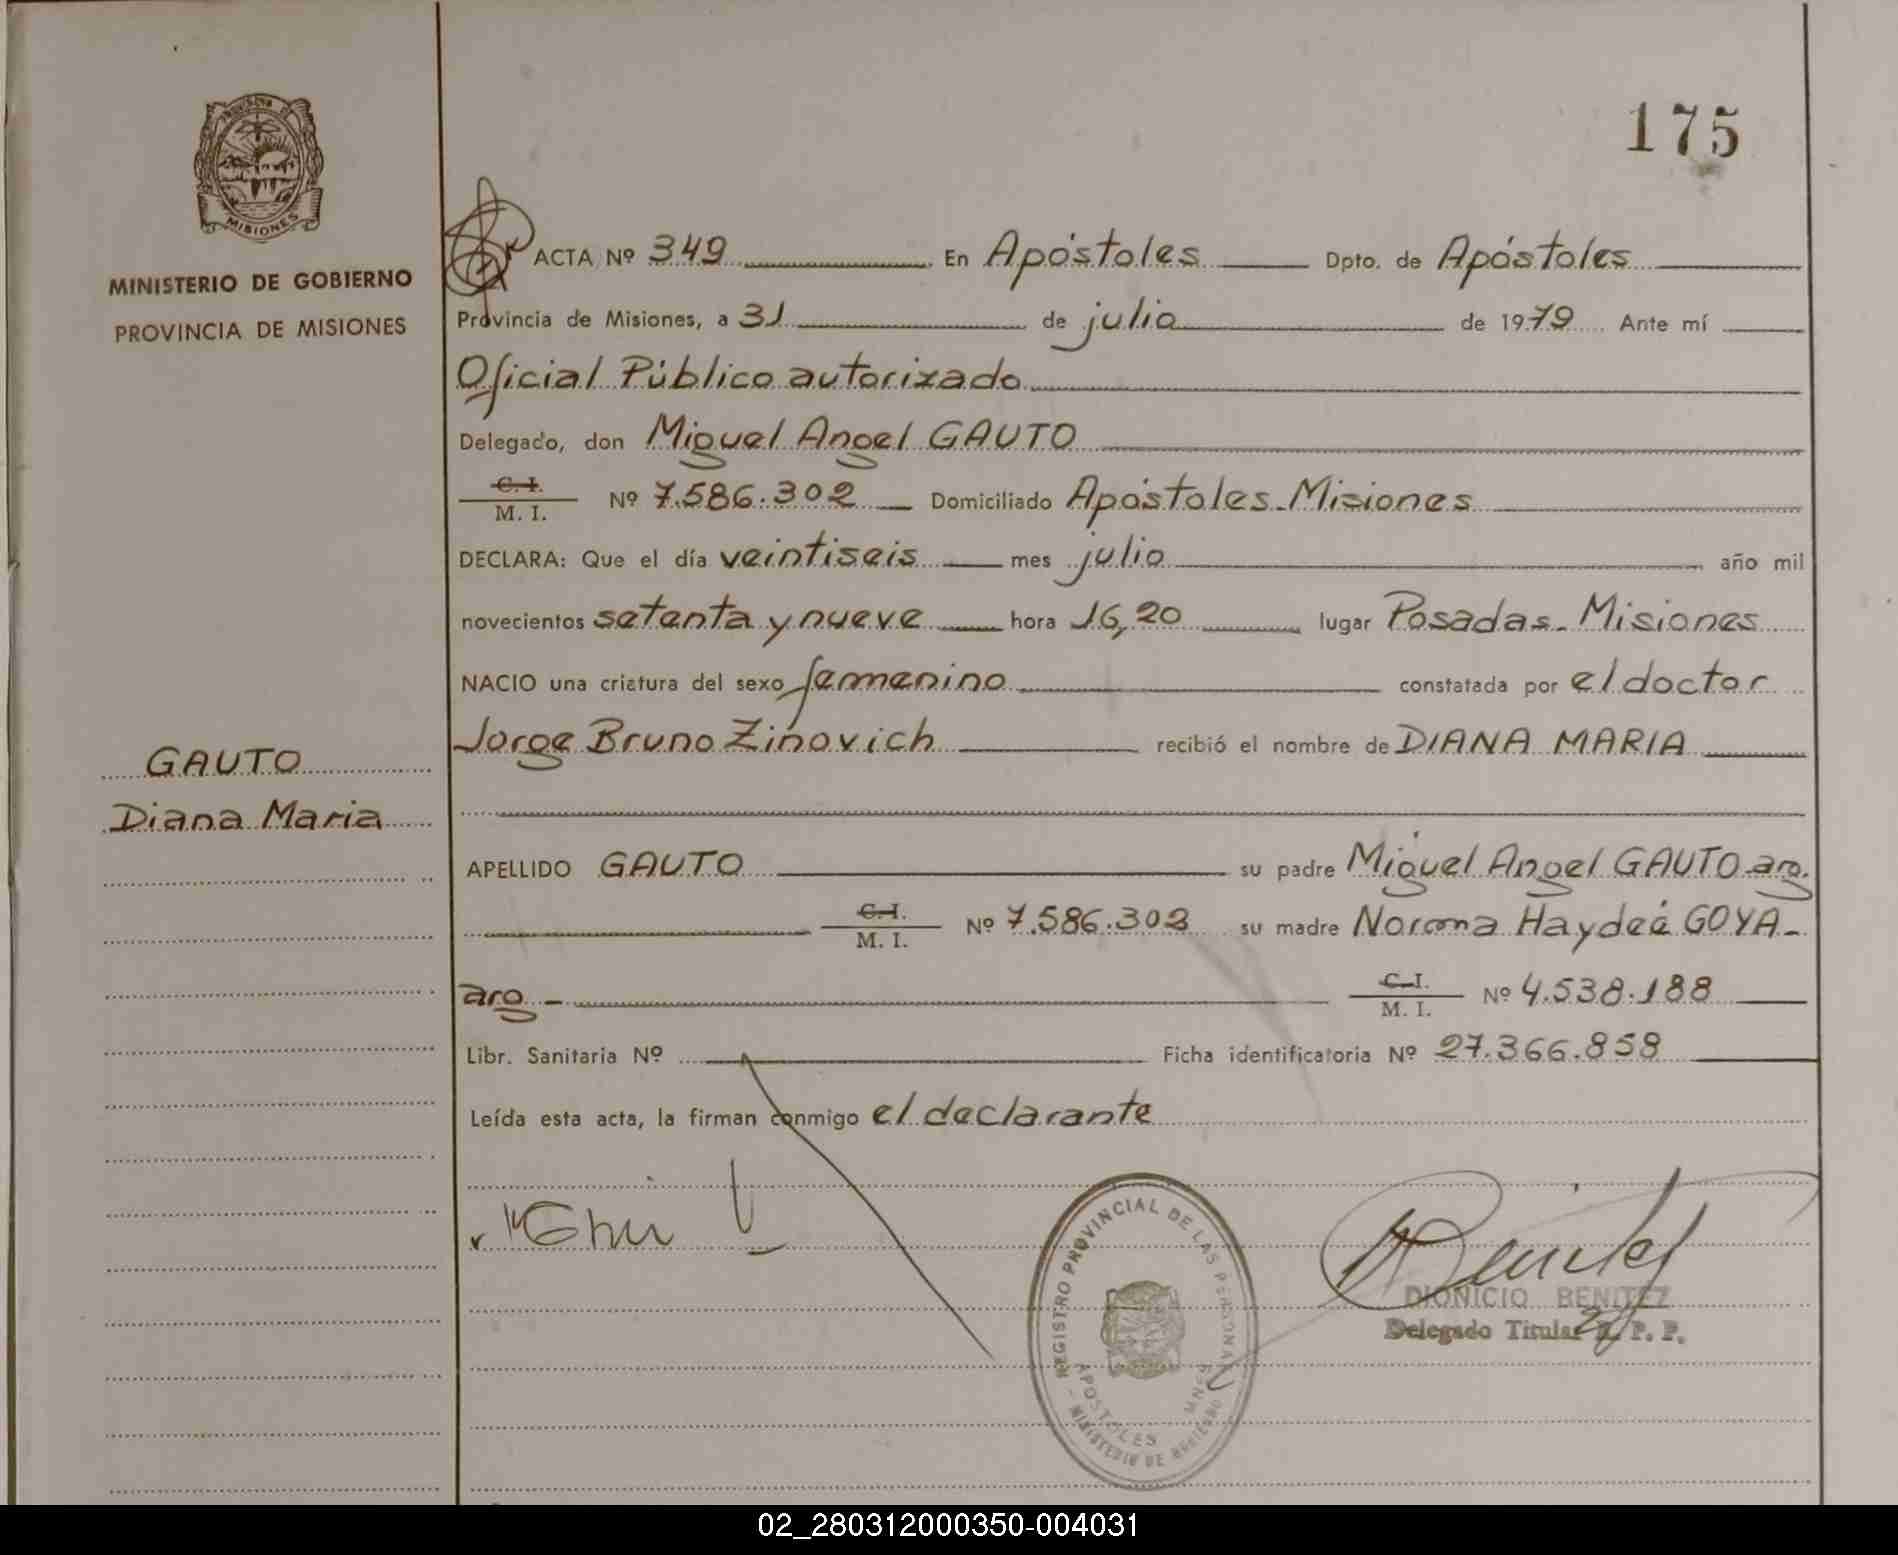 175
PROVINCIA DE
MISIONES
MINISTERIO DE GOBIERNO
PROVINCIA DE MISIONES
GAUTO
Diana Maria
ACTA Nº 349 En Apóstoles Dpto. de Apóstoles
Provincia de Misiones, a 31 de julio de 1979 Ante mí
Oficial Público autorizado
Delegado, don Miguel Angel GAUTO
C. I.
M. I. Nº 7.586.302 Domiciliado Apóstoles-Misiones
DECLARA: Que el día veintiseis mes julio año mil
novecientos setenta y nueve hora 16,20 lugar Posadas-Misiones
NACIO una criatura del sexo femenino constatada por el doctor
Jorge Bruno Zinovich recibió el nombre de DIANA MARIA
APELLIDO GAUTO su padre Miguel Angel GAUTO arg.
C. I.
M. I. Nº 7.586.302 su madre Norma Haydeé GOYA-
arg - C. I.
M. I. Nº 4.538.188
Libr. Sanitaria Nº Ficha identificatoria Nº 27.366.858
Leída esta acta, la firman conmigo el declarante
REGISTRO PROVINCIAL DE LAS PERSONAS
APOSTOLES MNES
- MINISTERIO DE GOBIERNO
Benitez
DIONICIO BENITEZ
Delegado Titular R. P. P.
02_280312000350-004031